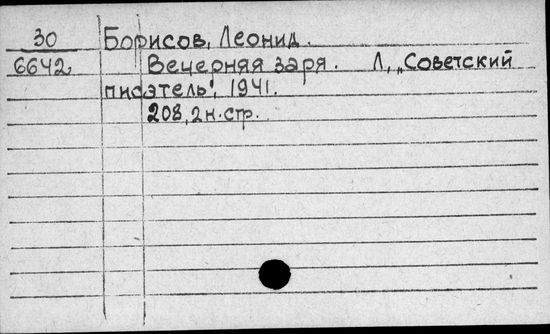 30 Борисов, Леонид.
6642 Вечерняя заря. Л, „Советский
писатель", 1941.
208, 2н.стр.